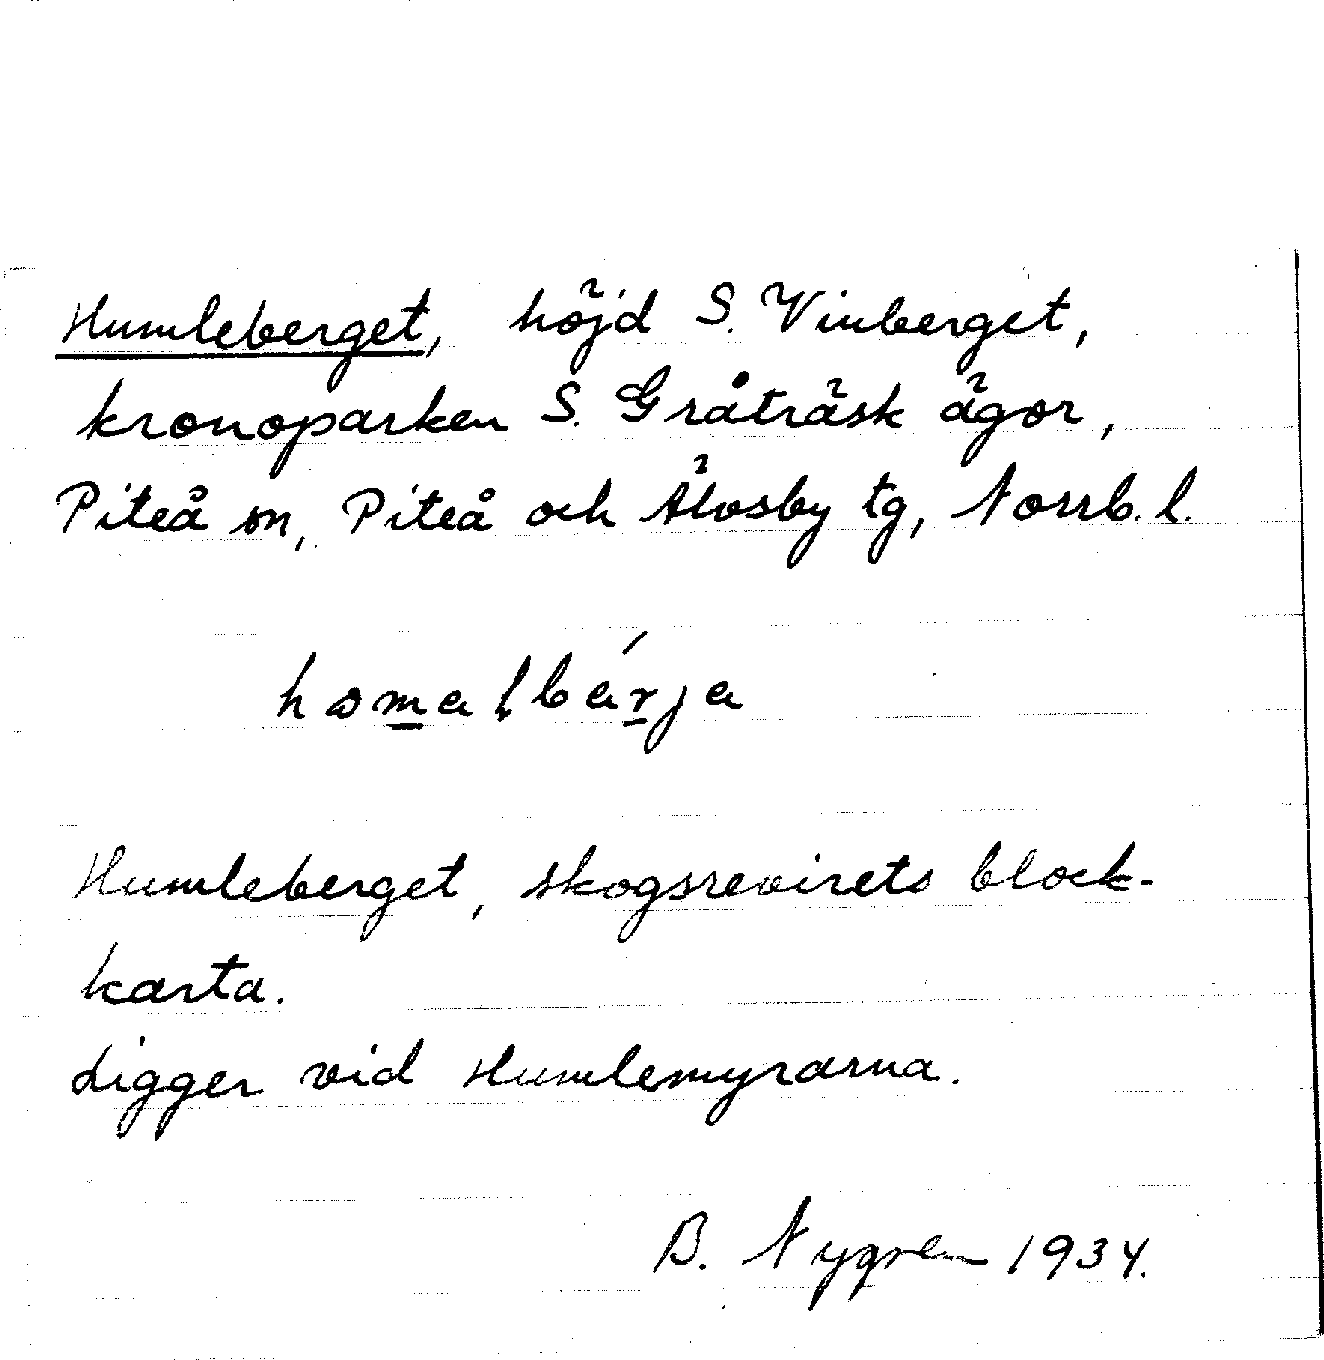 Humleberget, höjd S. Vinberget,
kronoparken S. Gråträsk ägor,
Piteå sn, Piteå och Älvsby tg, Norrb. l.
Humleberget, skogsrevirets block-
karta.
Ligger vid Humlemyrarna.
B. Nygren 1934.